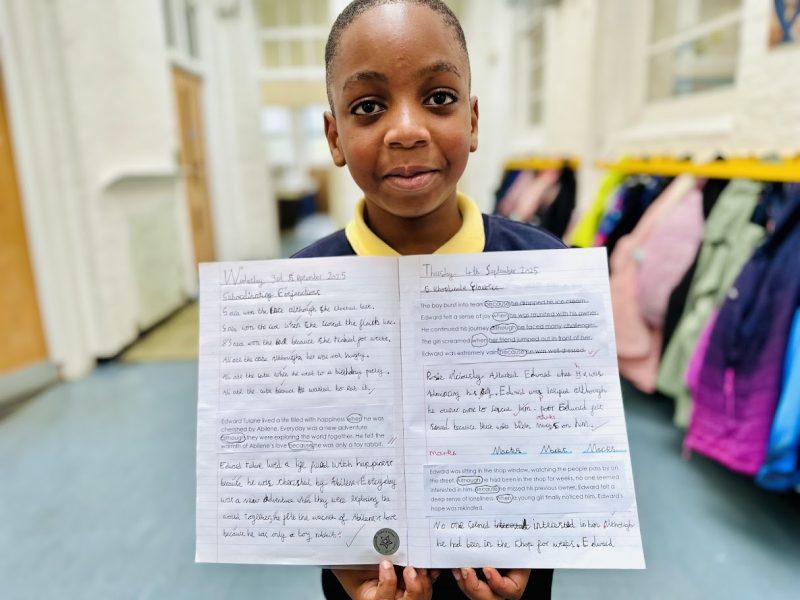 Wednesday 3rd September 2025
Subordinating Conjunctions
Sara won the race although she started late.
Sara won the race when she crossed the finish line.
Sara won the because she trained for weeks.
Ali ate the cake Although he was not hungry.
Ali ate the cake when he went to a birthday party.
Ali ate the cake because he wanted to eat it.
Edward Tulane lived a life filled with happiness when he was
cherished by Abilene. Everyday was a new adventure
although they were exploring the world together. He felt the
warmth of Abilene's love because he was only a toy rabbit.
Edward tulane lived a life filled with happiness
because he was cherished by Abilene. Everyday
was a new adventure when they were exploring the
world together. he felt the warmth of Abilene's love
because he was only a toy rabbit.
Thursday 4th September 2025
Subordinate Clauses
The boy burst into tears because he dropped his ice cream.
Edward felt a sense of joy when he was reunited with his owner.
He continued his journey although he faced many challenges.
The girl screamed when her friend jumped out in front of her.
Edward was extremely vain because he was well-dressed.
Rosie viciously Attacked Edward when he was
his. Edward was although
he owner came to him. poor Edward felt
because there was on him.
marks Marks Marks Marks
Edward was sitting in the shop window, watching the people pass by on
the street. Although he had been in the shop for weeks, no one seemed
interested in him. Because he missed his previous owner, Edward felt a
deep sense of loneliness. When a young girl finally noticed him, Edward's
hope was rekindled.
No one seemed interested in him Although
he had been in the shop for weeks. Edward